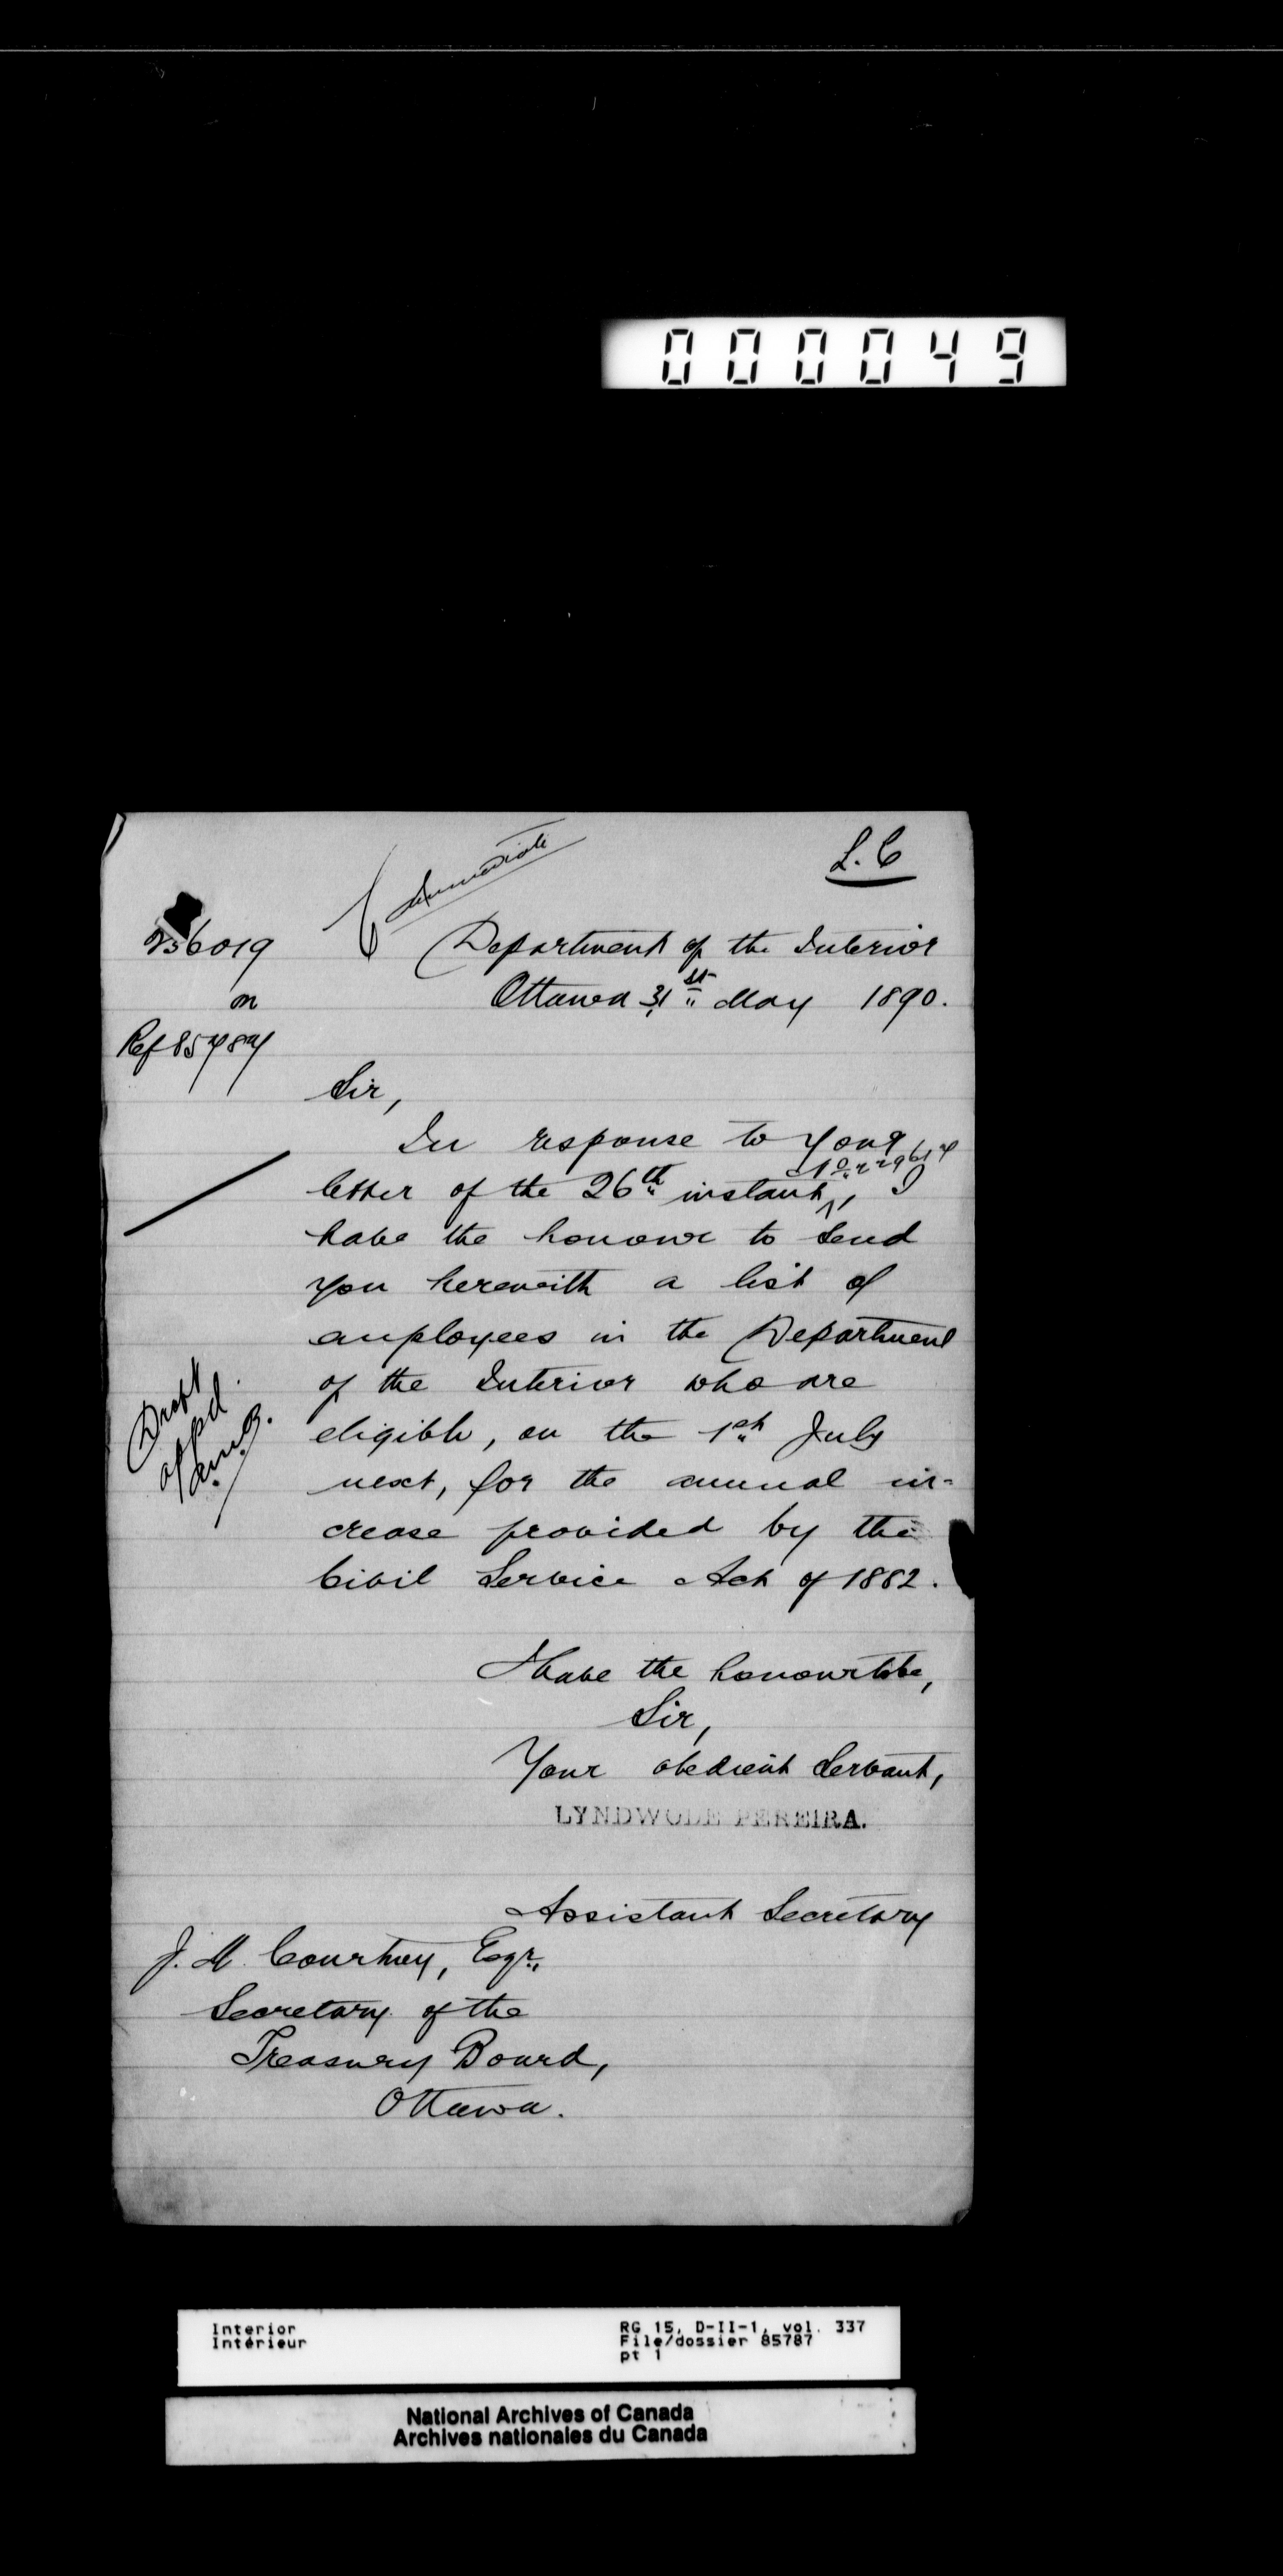 000049
L. C
Immediate
256019
on
Ref 85787
Department of the Interior
Ottawa 31st May 1890.
Sir,
In response to your
letter of the 26th instant, I
have the honour to send
you herewith a list of
employees in the Department
of the Interior who are
eligible, on the 1st July
next, for the annual in-
crease provided by the
Civil Service Act of 1882.
Draft
appd
I have the honour to be,
Sir,
Your obedient servant,
LYNDWODE PEREIRA.
Assistant Secretary
J. M. Courtney, Esqr.,
Secretary of the
Treasury Board,
Ottawa.
Interior
Intérieur
RG 15, D-II-1, vol. 337
File/dossier 85787
pt 1
National Archives of Canada
Archives nationales du Canada